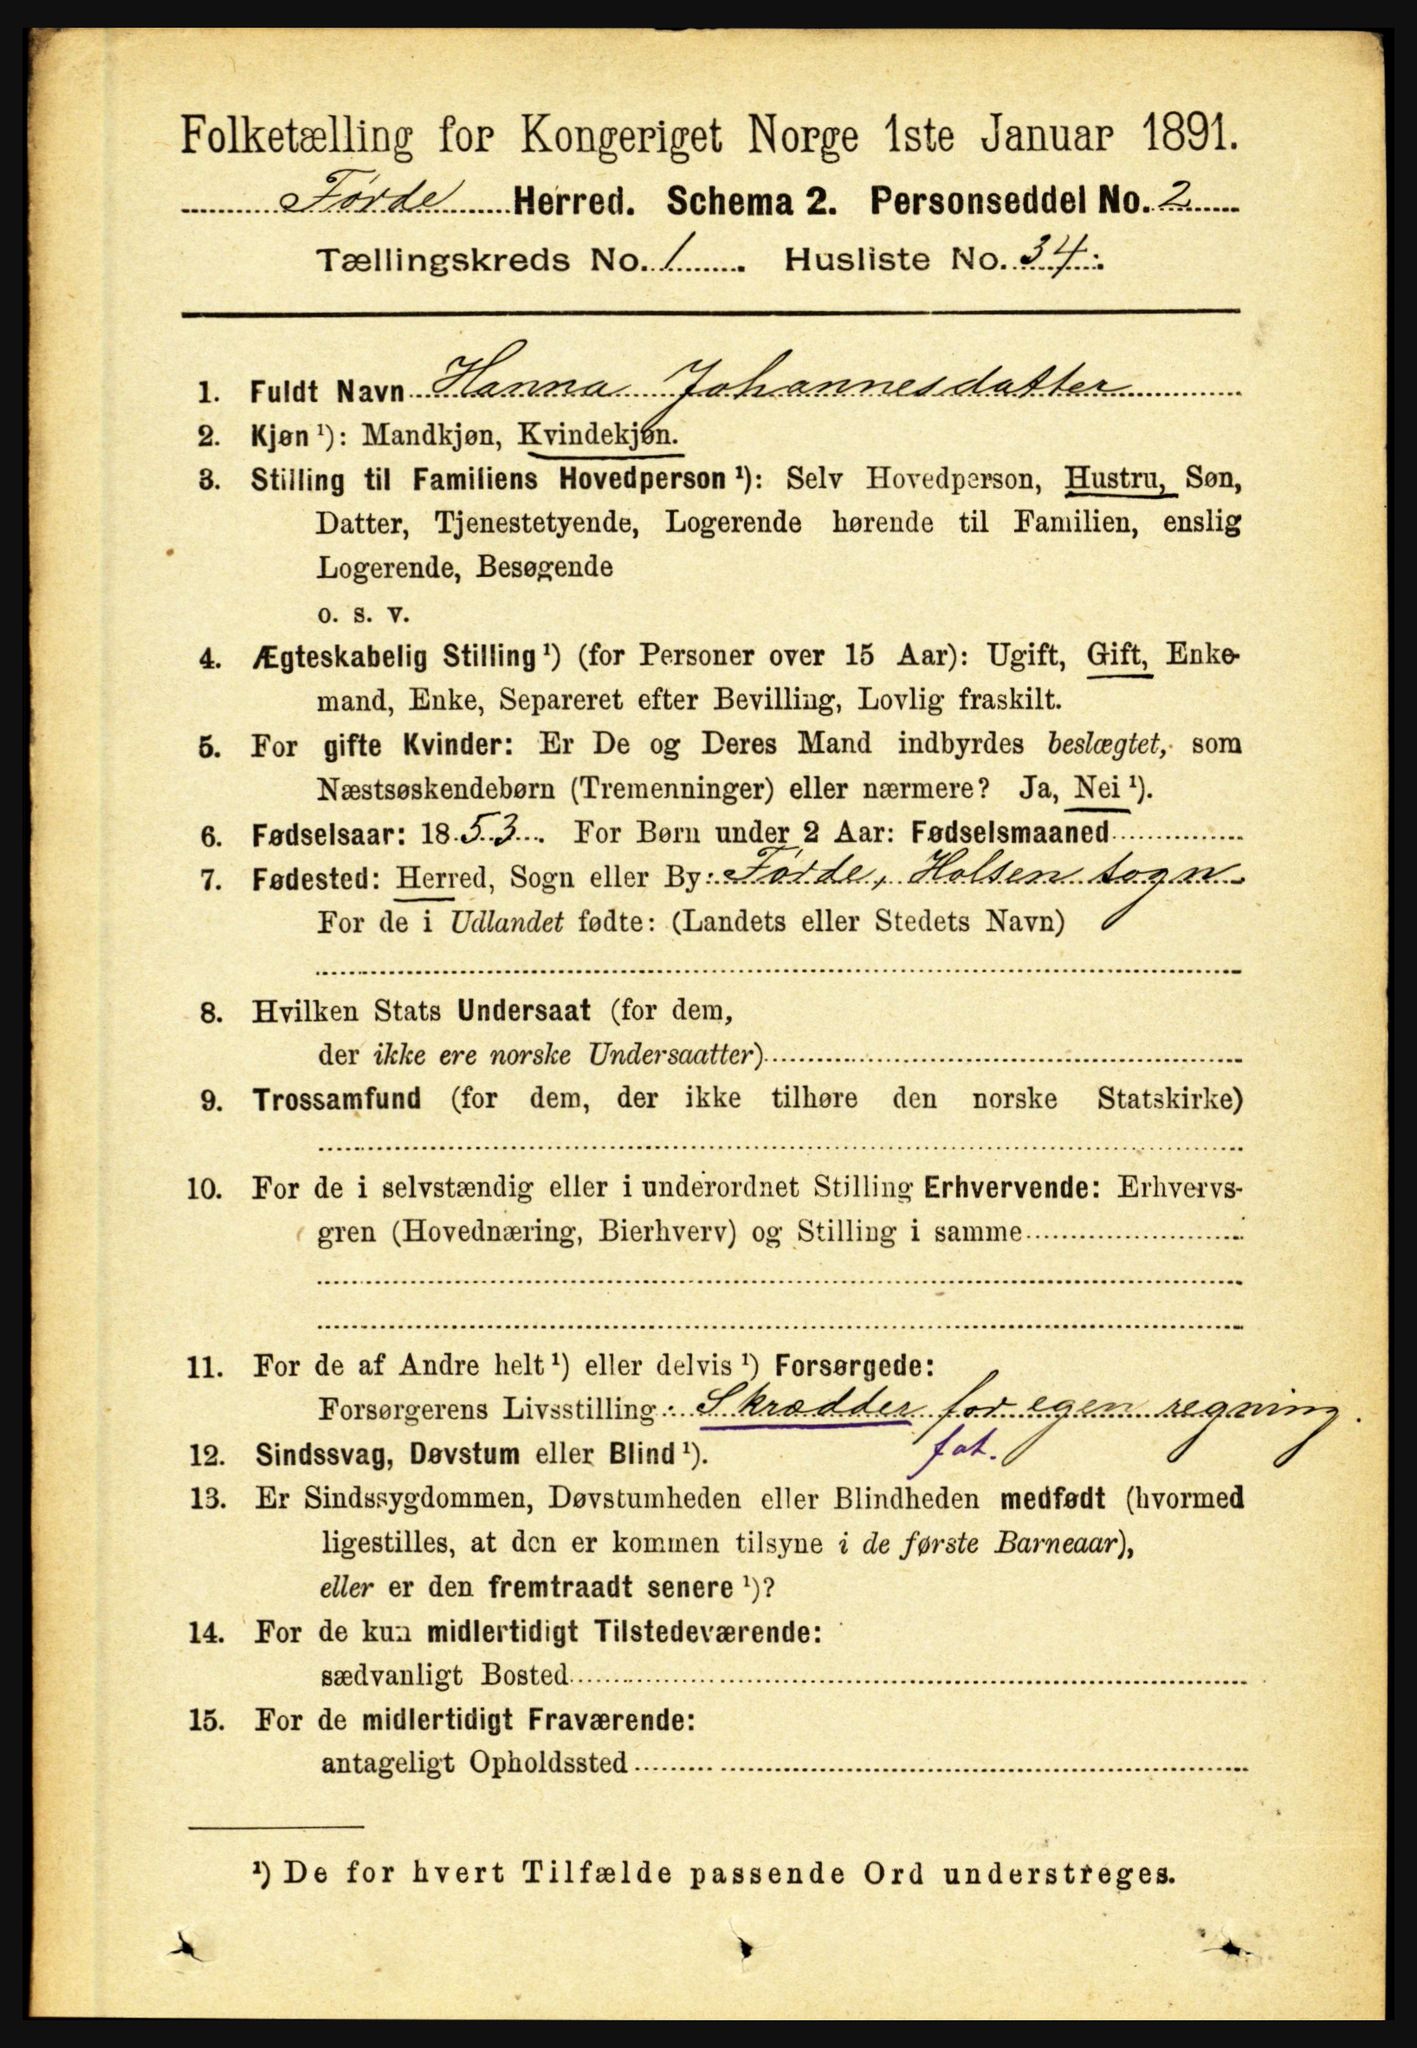 Folketælling for Kongeriget Norge 1ste Januar 1891.
Førde Herred. Schema 2. Personseddel No. 2
Tællingskreds No. 1. Husliste No. 34.
1. Fuldt Navn Hanna Johannesdatter
2. Kjøn ¹): Mandkjøn, Kvindekjøn.
3. Stilling til Familiens Hovedperson ¹): Selv Hovedperson, Hustru, Søn,
Datter, Tjenestetyende, Logerende hørende til Familien, enslig
Logerende, Besøgende
o. s. v.
4. Ægteskabelig Stilling ¹) (for Personer over 15 Aar): Ugift, Gift, Enke-
mand, Enke, Separeret efter Bevilling, Lovlig fraskilt.
5. For gifte Kvinder: Er De og Deres Mand indbyrdes beslægtet, som
Næstsøskendebørn (Tremenninger) eller nærmere? Ja, Nei ¹).
6. Fødselsaar: 1853. For Børn under 2 Aar: Fødselsmaaned
7. Fødested: Herred, Sogn eller By: Førde, Holsen sogn
For de i Udlandet fødte: (Landets eller Stedets Navn)
8. Hvilken Stats Undersaat (for dem,
der ikke ere norske Undersaatter)
9. Trossamfund (for dem, der ikke tilhøre den norske Statskirke)
10. For de i selvstændig eller i underordnet Stilling Erhvervende: Erhvervs-
gren (Hovednæring, Bierhverv) og Stilling i samme
11. For de af Andre helt ¹) eller delvis ¹) Forsørgede:
Forsørgerens Livsstilling: Skrædder for egen regning.
fat.
12. Sindssvag, Døvstum eller Blind ¹).
13. Er Sindssygdommen, Døvstumheden eller Blindheden medfødt (hvormed
ligestilles, at den er kommen tilsyne i de første Barneaar),
eller er den fremtraadt senere ¹)?
14. For de kun midlertidigt Tilstedeværende:
sædvanligt Bosted
15. For de midlertidigt Fraværende:
antageligt Opholdssted
¹) De for hvert Tilfælde passende Ord understreges.